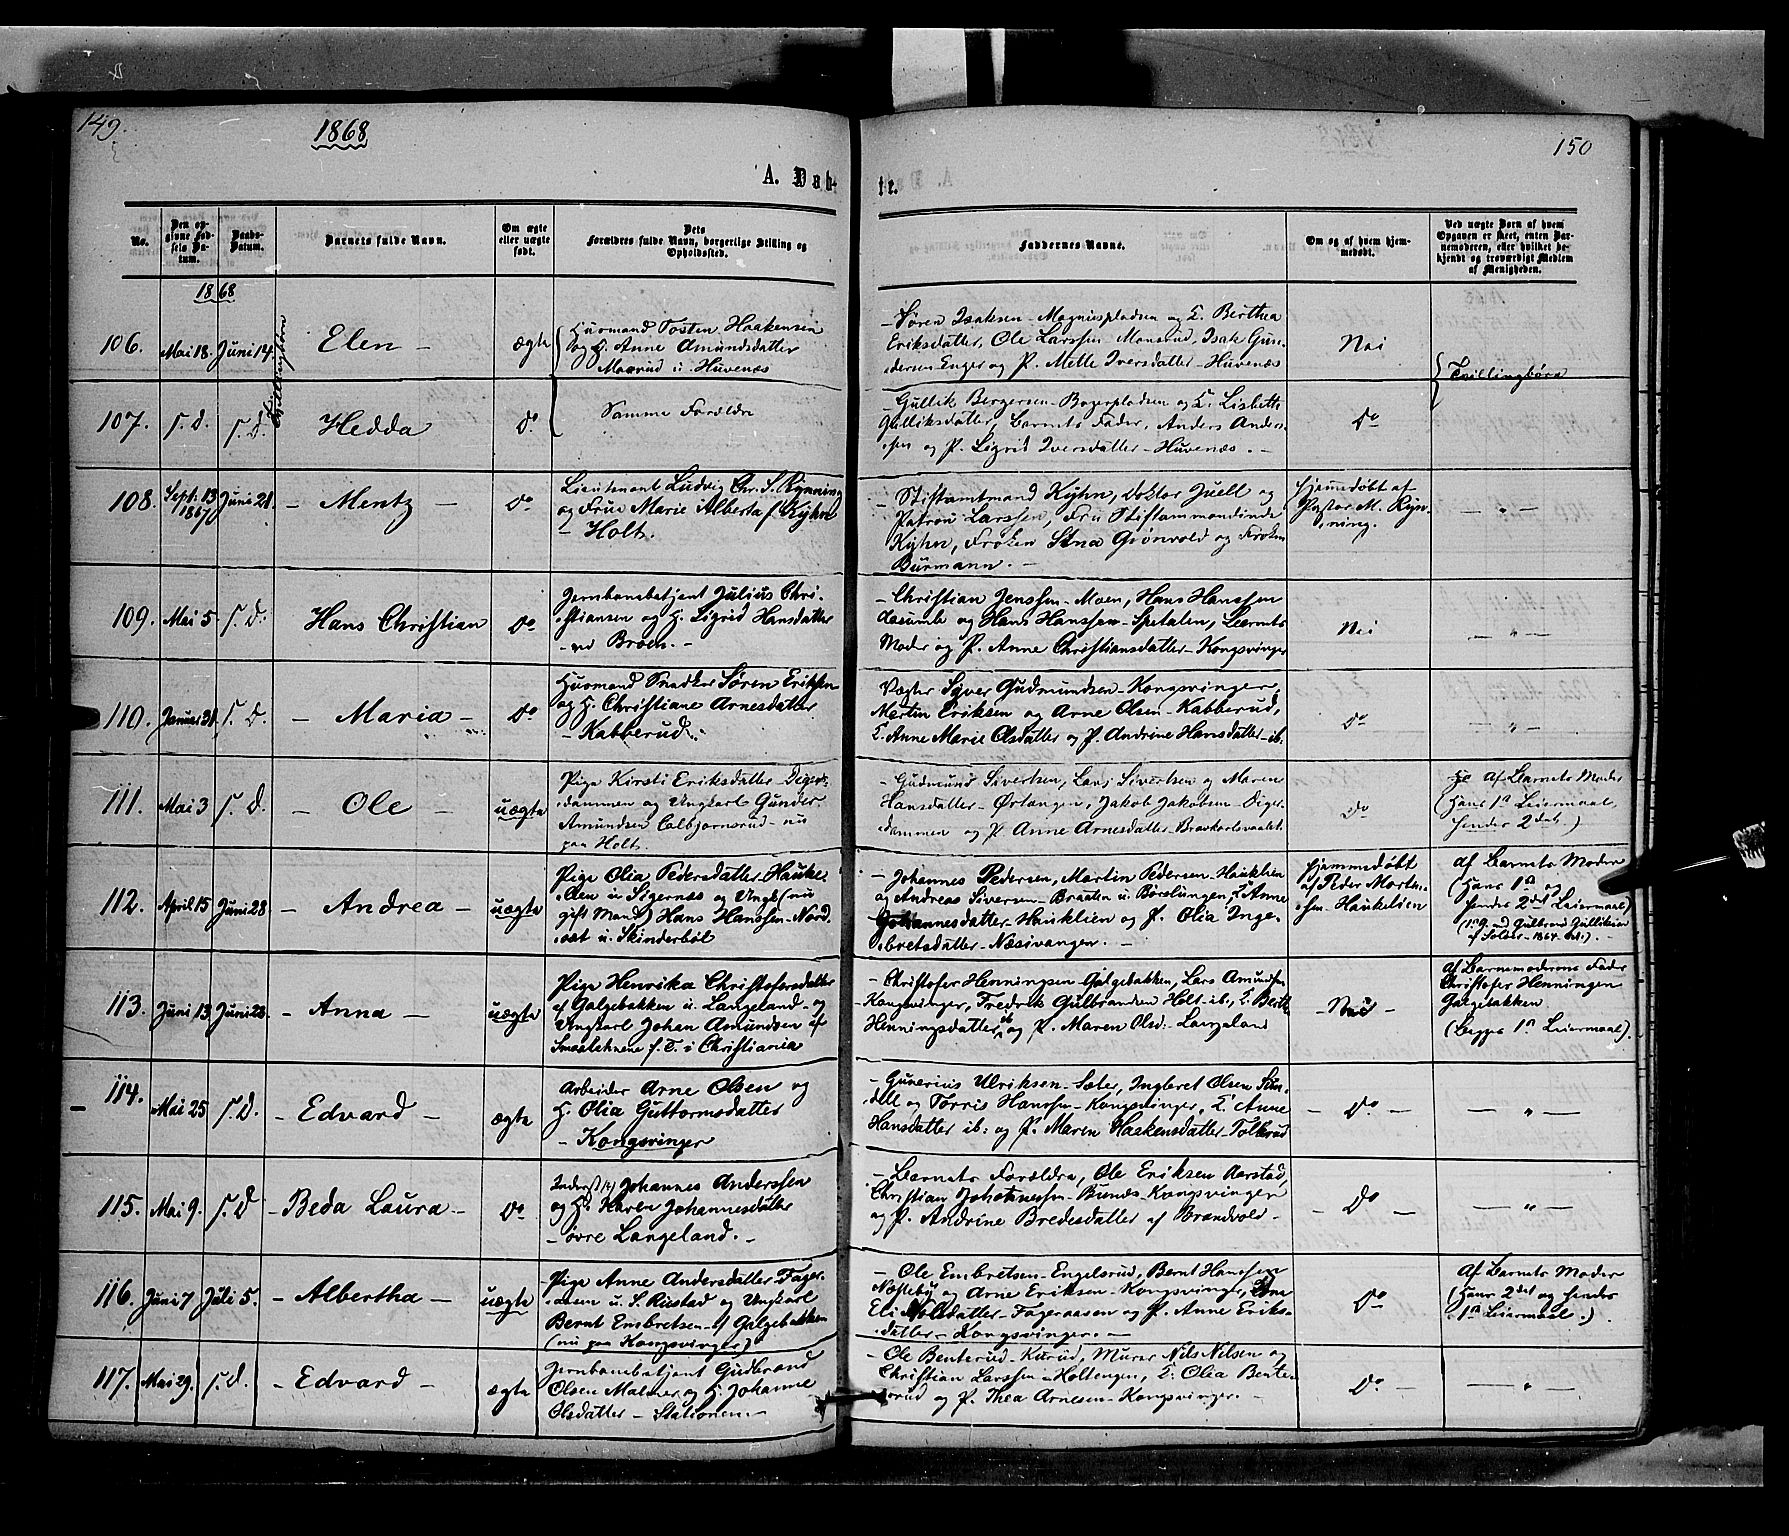 149.
1868
150
A. Døbte.
No.
Den opgivne Fødsels Datum.
Daabs-Datum.
Barnets fulde Navn.
Om ægte eller uægte født.
Dets Forældres fulde Navn, borgerlige Stilling og Opholdssted.
Faddernes Navne.
Om og af hvem hjemmedøbt.
Ved uægte Børn af hvem Opgaven er skeet, enten Barnemoderen, eller hvilket bekjendt og troværdigt Medlem af Menigheden.
1868
106. Mai 18. Juni 14. Tvillingbørn Elen – ægte
Huusmand Tosten Haakensen
og H. Anne Amundsdatter
Maarud u. Huvenæs
– Søren Isaksen – Magnuspladsen og E. Berthea
Eriksdatter, Ole Larssen Monsrud, Isak Gun-
dersen Enger og P. Mette Iversdatter – Huvenæs
Nei
Tvillingbørn
107. s. d. s. d. Hedda do
Samme Forældre
– Gullik Bergersen – Bogerpladsen og E. Lisbeth
Gulliksdatter, Barnets Fader, Anders Anders-
sen og P. Sigrid Iversdatter – Huvenæs. –
do
108. Sept. 13 1867 Juni 21. – Mentz – do
Lieutenant Ludvig Chr. S. Rynning
og Frue Marie Alberta f. Kyhn
– Holt.
– Stiftamtmand Kyhn, Doktor Juell og
Patron Larssen, Fru Stiftamtmandinde
Kyhn, Frøken Stna Grønvold og Frøken
Burmann. –
Hjemmedøbt af
Pastor M. Ryn-
ning.
– " –
109. Mai 5 s. d. Hans Christian do
Jernbanebetjent Julius Chri-
stiansen og H. Sigrid Hansdatter
– ved Broen. –
– Christian Jenssen – Moen, Hans Hanssen
Aasumb og Hans Hanssen – Spetalen, Barnets
Moder og P. Anne Christiansdatter – Kongsvinger
Nei
– " –
110. Januar 31. s. d. – Maria – do
Huusmand Snedker Søren Eriksen
og H. Christiane Arnesdatter
– Kabberud.
Vægter Syver Gudmundsen – Kongsvinger,
Martin Eriksen og Arne Olsen – Kabberud,
E. Anne Marie Olsdatter og P. Andrine Hansdatter – ib.
do
– " –
111. Mai 3 s. d. – Ole – uægte
Pige Kirsti Eriksdatter – Diger-
dammen og Ungkarl Gunder
Amundsen Colbjørnsrud – nu
paa Holt.
– Gudmund Sivertsen, Lars Sivertsen og Maren
Hansdatter – Ørtangen, Jakob Jakobsen – Diger-
dammen og P. Anne Arnesdatter – Bravkarlsvaalet
do
Af Barnets Moder
(Hans 1ste Leiermaal,
hendes 2det.)
112. April 15 Juni 28 – Andrea – uægte
Pige Olia Pedersdatter – Hauke-
lien u. Sigernæs og Ungk. (nu
gift Mand) Hans Hanssen – Nord-
sæt u. Skinderbøl
– Johannes Pedersen, Martin Pedersen – Hauklien
og Andreas Siversen – Braaten u. Børslungen, E. Anne
Johannesdatter – Hauklien og P. Olia Inge-
bretsdatter – Næsivangen. –
Hjemmedøbt
af Peder Morten-
sen – Haukelien
af Barnets Moder
(Hans 1ste og
hendes 2det Leiermaal)
113. Juni 13 Juni 28. – Anna – uægte
Pige Henrika Christofersdatter
af Galgebakken u. Langeland – og
Ungkarl Johan Amundsen af
Smaalehnene f. T. i Christiania
– Christofer Henningsen Galgebakken, Lars Amundsen
Kongsvinger, Fredrik Gulbrandsen Holt – ib., E. Berth
Henningsdatter ib og P. Maren Olsd. – Langeland
– Nei –
af Barnemoderens Fader
Christofer Henningsen
Galgebakken
(Begges 1ste Leiermaal).
114. Mai 25 s. d. – Edvard – ægte
Arbeider Arne Olsen og
H. Olia Guttormsdatter
– Kongsvinger
– Gunerius Ulriksen – Sæter, Ingleret Olsen Sun-
dell og Torris Hanssen – Kongsvinger, E. Anne
Hansdatter ib: og P. Maren Haakensdatter – Tolkrud
– do –
– " –
115. Mai 9. s. d – Beda Laura – do
Inderst Johannes Anderssen
og H. Karen Johannesdatter
– øvre Langeland. –
– Barnets Forældre, Ole Eriksen Aarstad,
Christian Johannessen – Bunæs – Kongsvinger
og P. Andrine Bredesdatter af Brandvold –
– do –
– " –
116. Juni 7 Juli 5. – Albertha – uægte
Pige Anne Andersdatter – Fager-
aasen u. S. Rustad og Ungkarl
Bernt Embretsen – af Galgebakken
(nu paa Kongsvinger)
– Ole Embretsen – Engelsrud, Bernt Hanssen
Næfteby og Arne Eriksen – Kongsvinger,
Eli Olsdatter – Fageraasen og P. Anne Eriks-
datter – Kongsvinger. –
do
Af Barnets Moder
(Hans 2det og hendes
1ste Leiermaal.)
117. Mai 29. s. d. – Edvard – ægte
Jernbanebetjent Gudbrand
Olsen Malmer og H. Johanne
Olsdatter – Stationen –
– Ole Benterud – Kurud, Murer Nils Nilsen og
Christian Larssen – Holtengen, E. Olia Bente-
rud og P. Thea Arnesen – Kongsvinger. –
do –
– " –